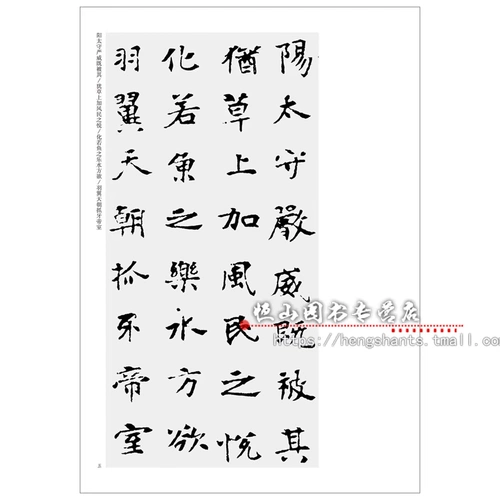 阳太守严威既被其/犹草上加风民之悦/化若鱼之乐水方欲/羽翼天朝抓牙帝室
陽太守嚴威既被其
猶草上加風民之悦
化若魚之樂水方欲
羽翼天朝抓牙帝室
恒山图书专卖店
https://hengshants.tmall.co
五